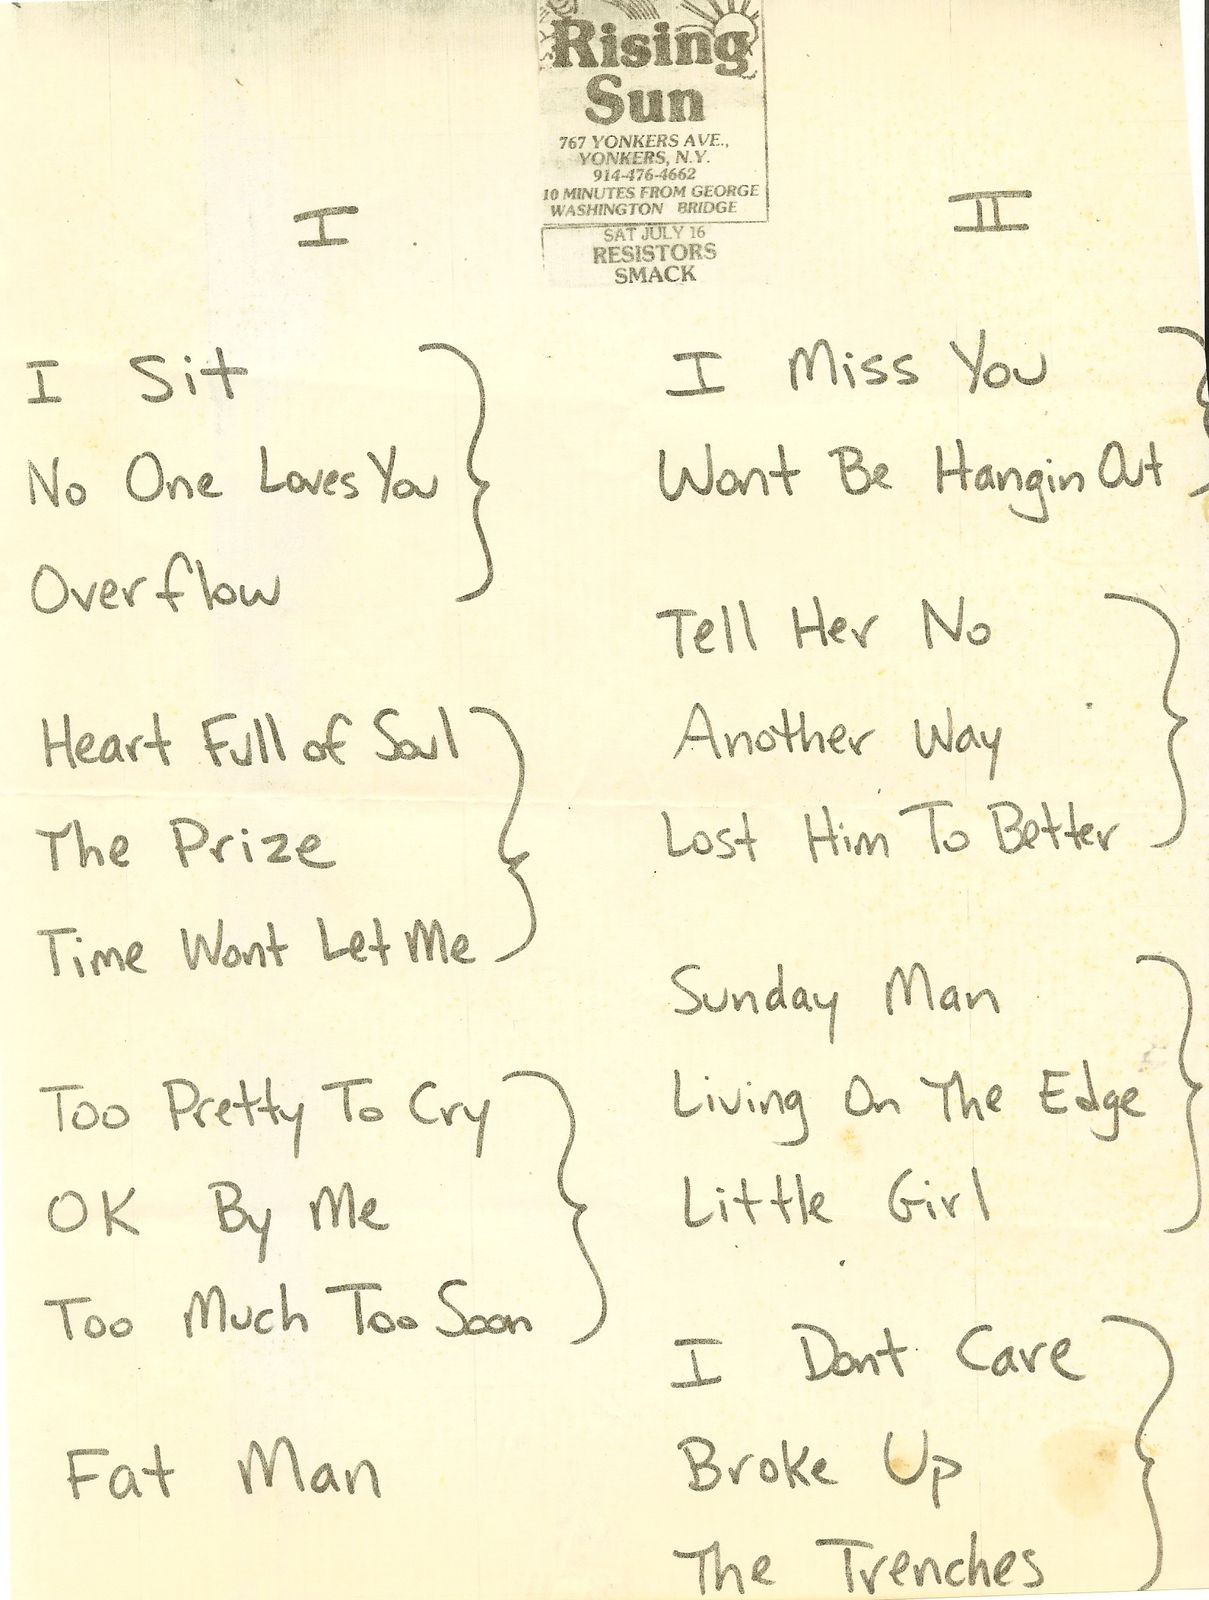 Rising
Sun
767 YONKERS AVE.,
YONKERS, N.Y.
914-476-4662
10 MINUTES FROM GEORGE
WASHINGTON BRIDGE
SAT JULY 16
RESISTORS
SMACK
I
I Sit
No One Loves You
Overflow
Heart Full of Soul
The Prize
Time Wont Let Me
Too Pretty To Cry
OK By Me
Too Much Too Soon
Fat Man
II
I Miss You
Wont Be Hangin Out
Tell Her No
Another Way
Lost Him To Better
Sunday Man
Living On The Edge
Little Girl
I Dont Care
Broke Up
The Trenches